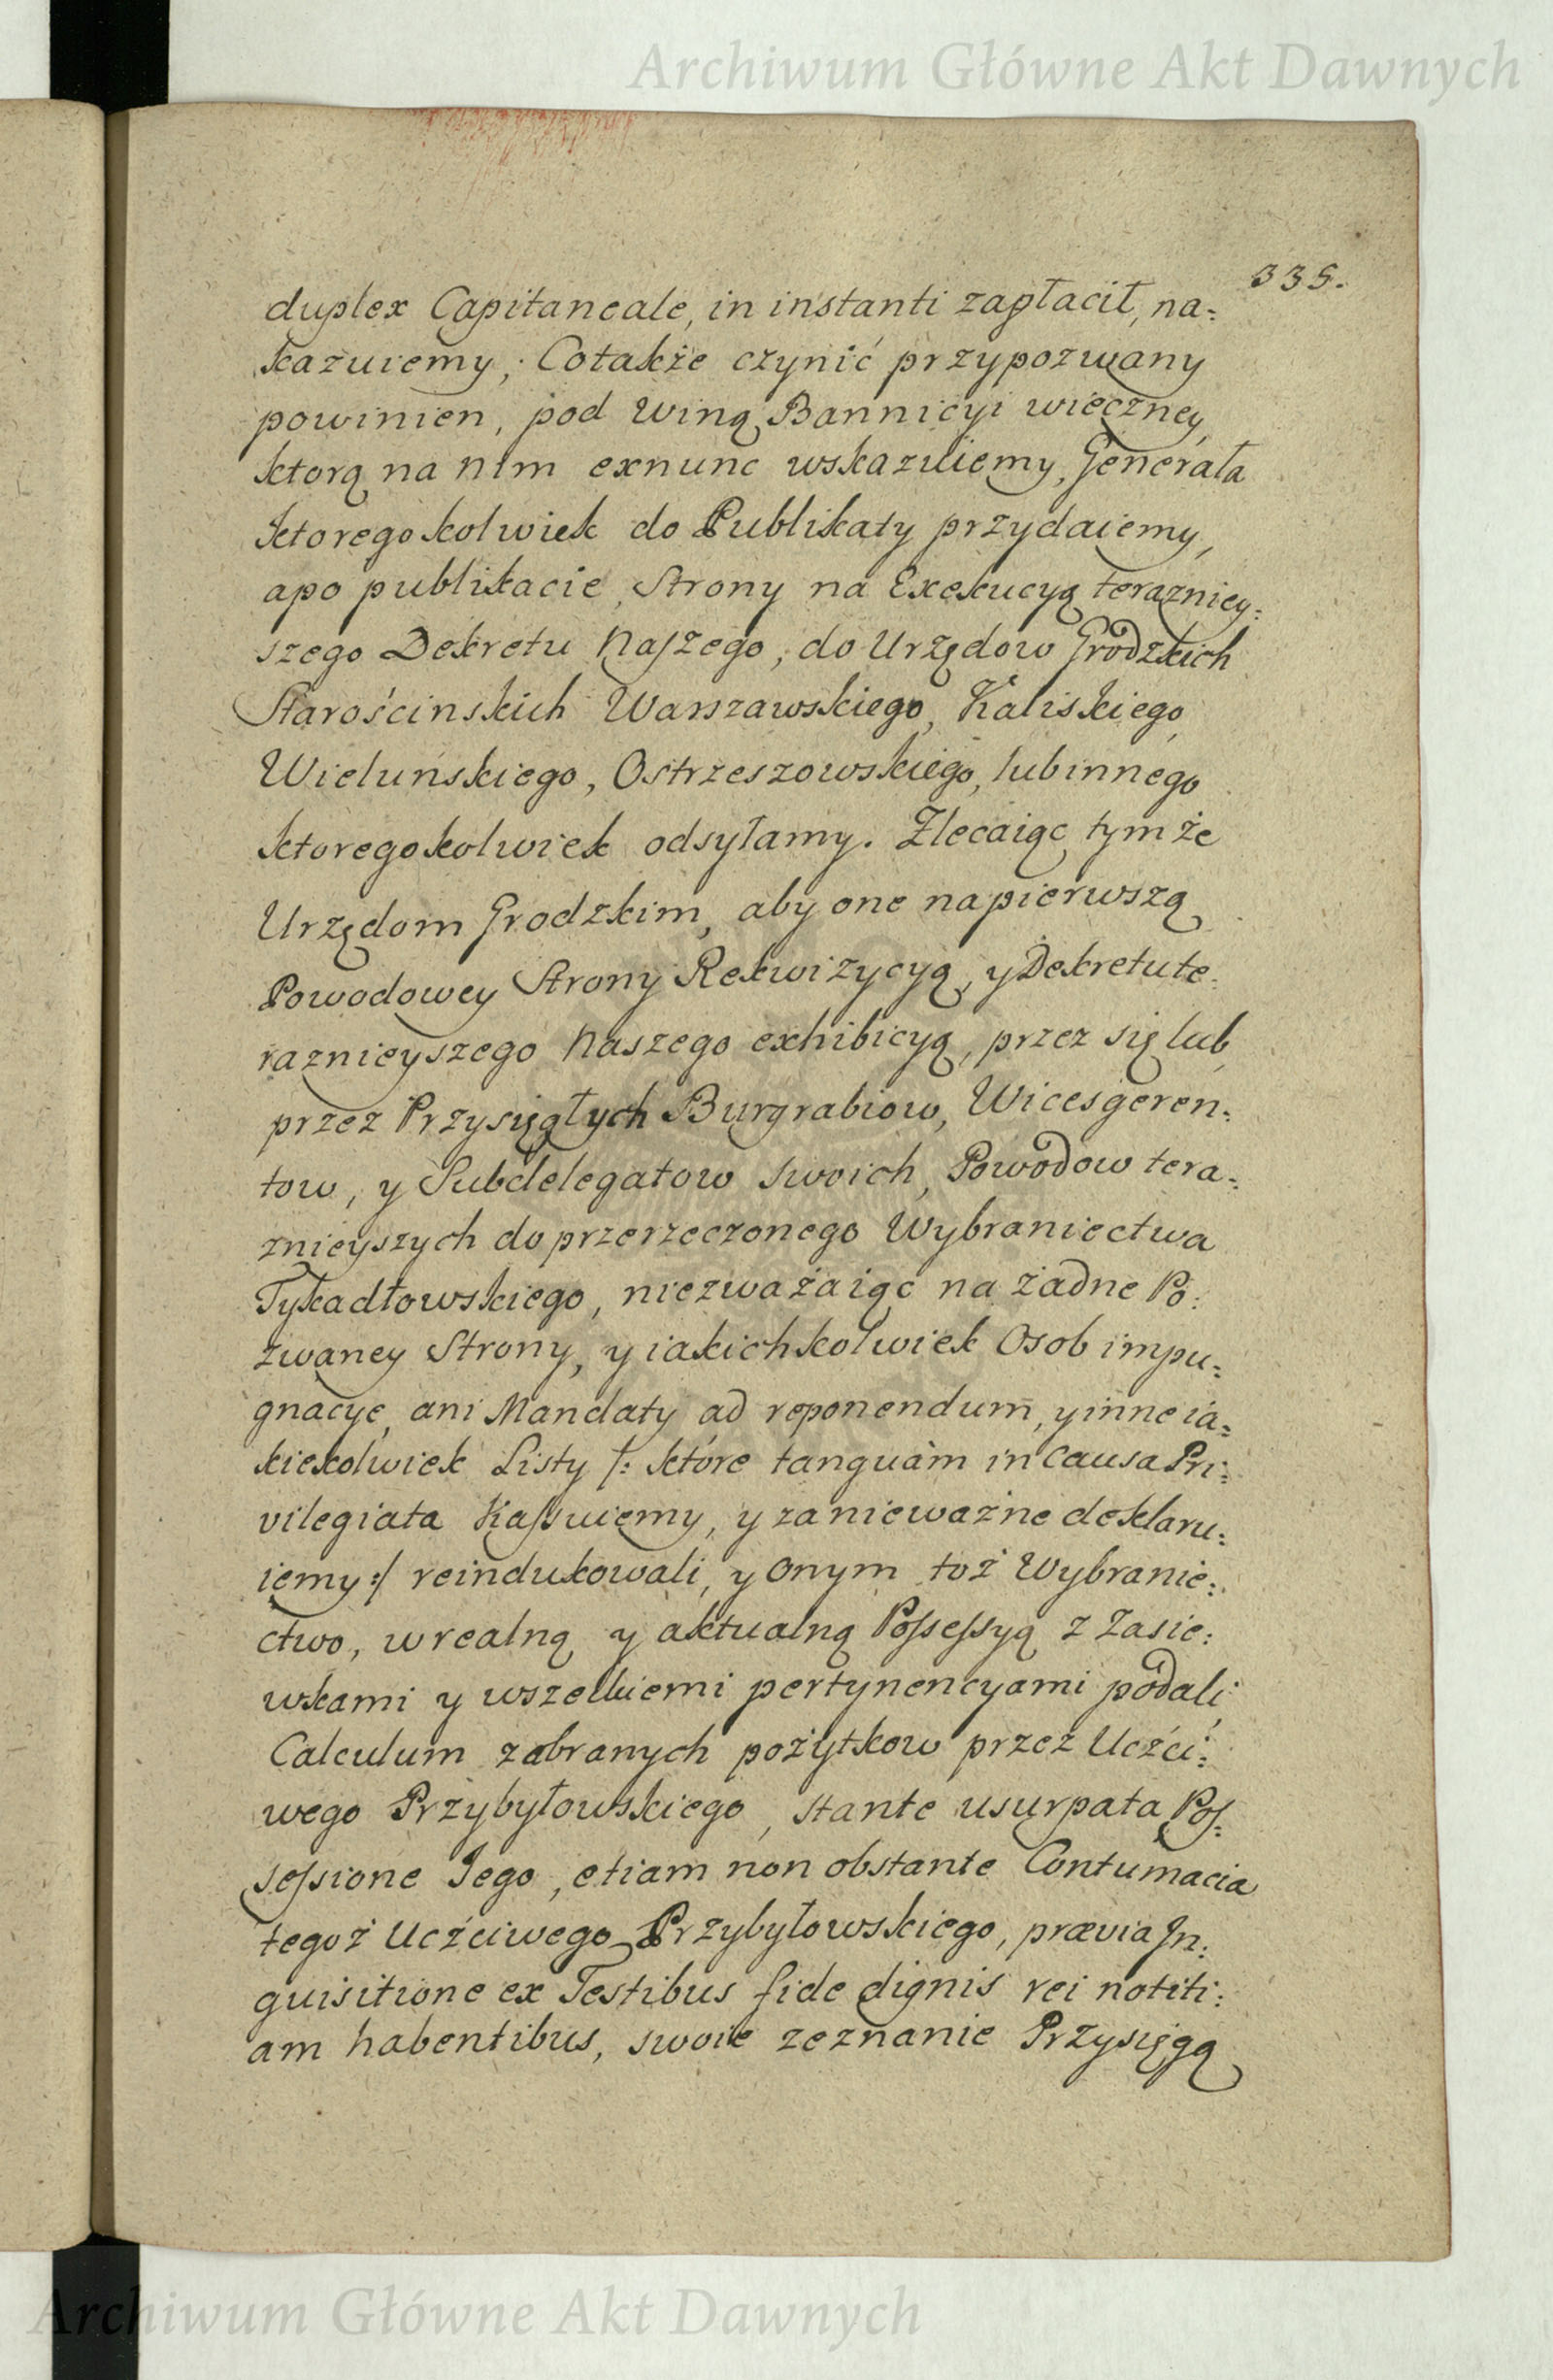 Archiwum Główne Akt Dawnych
335.
duplex Capitaneale, in instanti zapłacił, na=
kazuiemy; Cotakże czynić przypozwany
powinien, pod winą Bannicyi wieczney,
ktorą na nim exnunc wskazuiemy, Generała
ktoregokolwiek do Publikaty przydaiemy,
apo publikacie, Strony na Exekucyą terazniey=
szego Dekretu Naſzego, do Urzędow Grodzkich
Starościnskich Warszawskiego, Kaliskiego,
Wieluńskiego, Ostrzeszowskiego, lubinnego
ktoregokolwiek odsyłamy. Zlecaiąc tymże
Urzędom Grodzkim, aby one napierwszą
Powodowey Strony Rekwizycyą, y Dekretu te=
raznieyszego Naszego exhibicyą, przez się lub
przez Przysięgłych Burgrabiow, Wicesgeren=
tow, y Subdelegatow swoich, Powodow tera=
znieyszych do przerzeczonego Wybraniectwa
Tykadłowskiego, niezważaiąc na żadne Po=
zwaney Strony, y iakichkolwiek Osob impu=
gnacye, ani Mandaty ad reponendum, y inne ia=
kiekolwiek Listy /: które tanquàm in Causa Pri=
vilegiata Kaſsuiemy, y zanieważne deklaru=
iemy :/ reindukowali, y onym toż Wybranie=
ctwo, wrealną y aktualną Poſseſsyą z Zasie=
wkami y wszelkiemi pertynencyami podali,
Calculum zabranych pożytkow przez Uczći=
wego Przybyłowskiego, stante usurpata Poſ=
seſsione Jego, etiam non obstante Contumacia
tegoż Uczciwego Przybyłowskiego, prævia In=
quisitione ex Testibus fide dignis rei notiti=
am habentibus, swoie zeznanie Przysięgą
Archiwum Główne Akt Dawnych